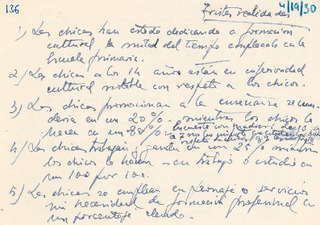 136
4/19/30
Tristes realidades
1) Las chicas han estado dedicando a formación
cultural la mitad del tiempo empleado en la
Escuela primaria.
2) Las chicas a los 14 años están en inferioridad
cultural notable con respecto a los chicos.
3) Las chicas promocionan a la enseñanza secun
daria en un 20% - mientras los chicos lo
hacen en un 80%
4) Las chicas trabajan en un 25% mientras
los chicos lo hacen - en trabajo o estudio en
un 100 por 100.
5) Las chicas se emplean en servicios
sin necesidad de formación profesional en
un porcentaje elevado.